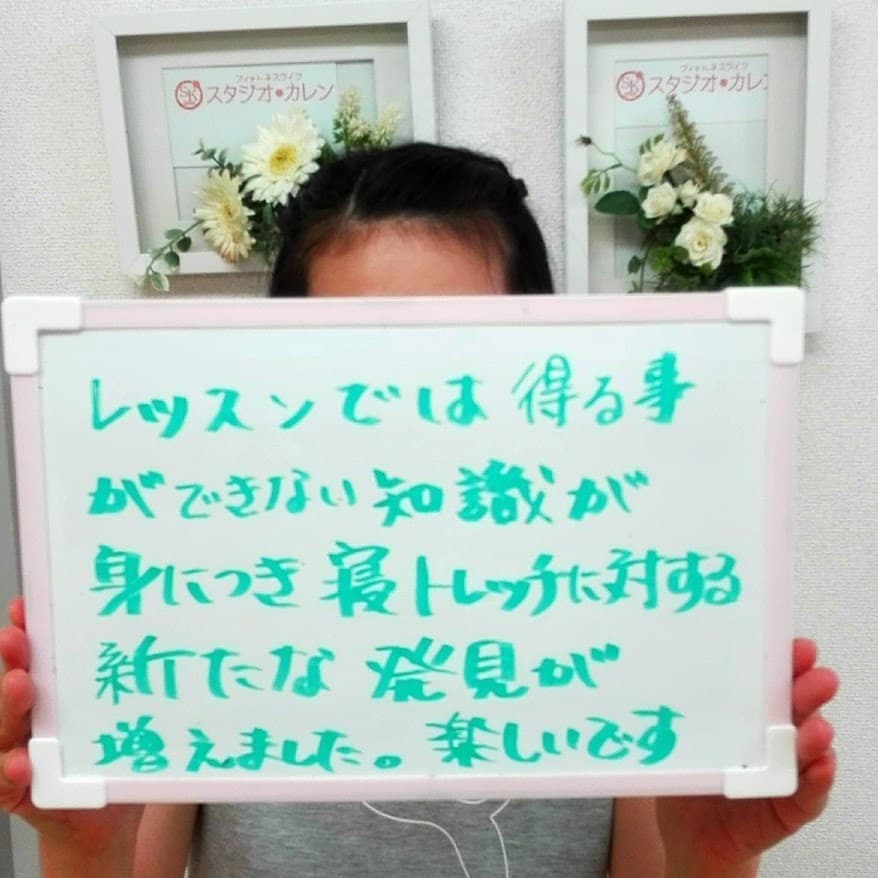 フィットネスライフ
スタジオ・カレン
フィットネスライフ
スタジオ・カレン
レッスンでは得る事
ができない知識が
身につき寝トレッチに対する
新たな発見が
増えました。楽しいです